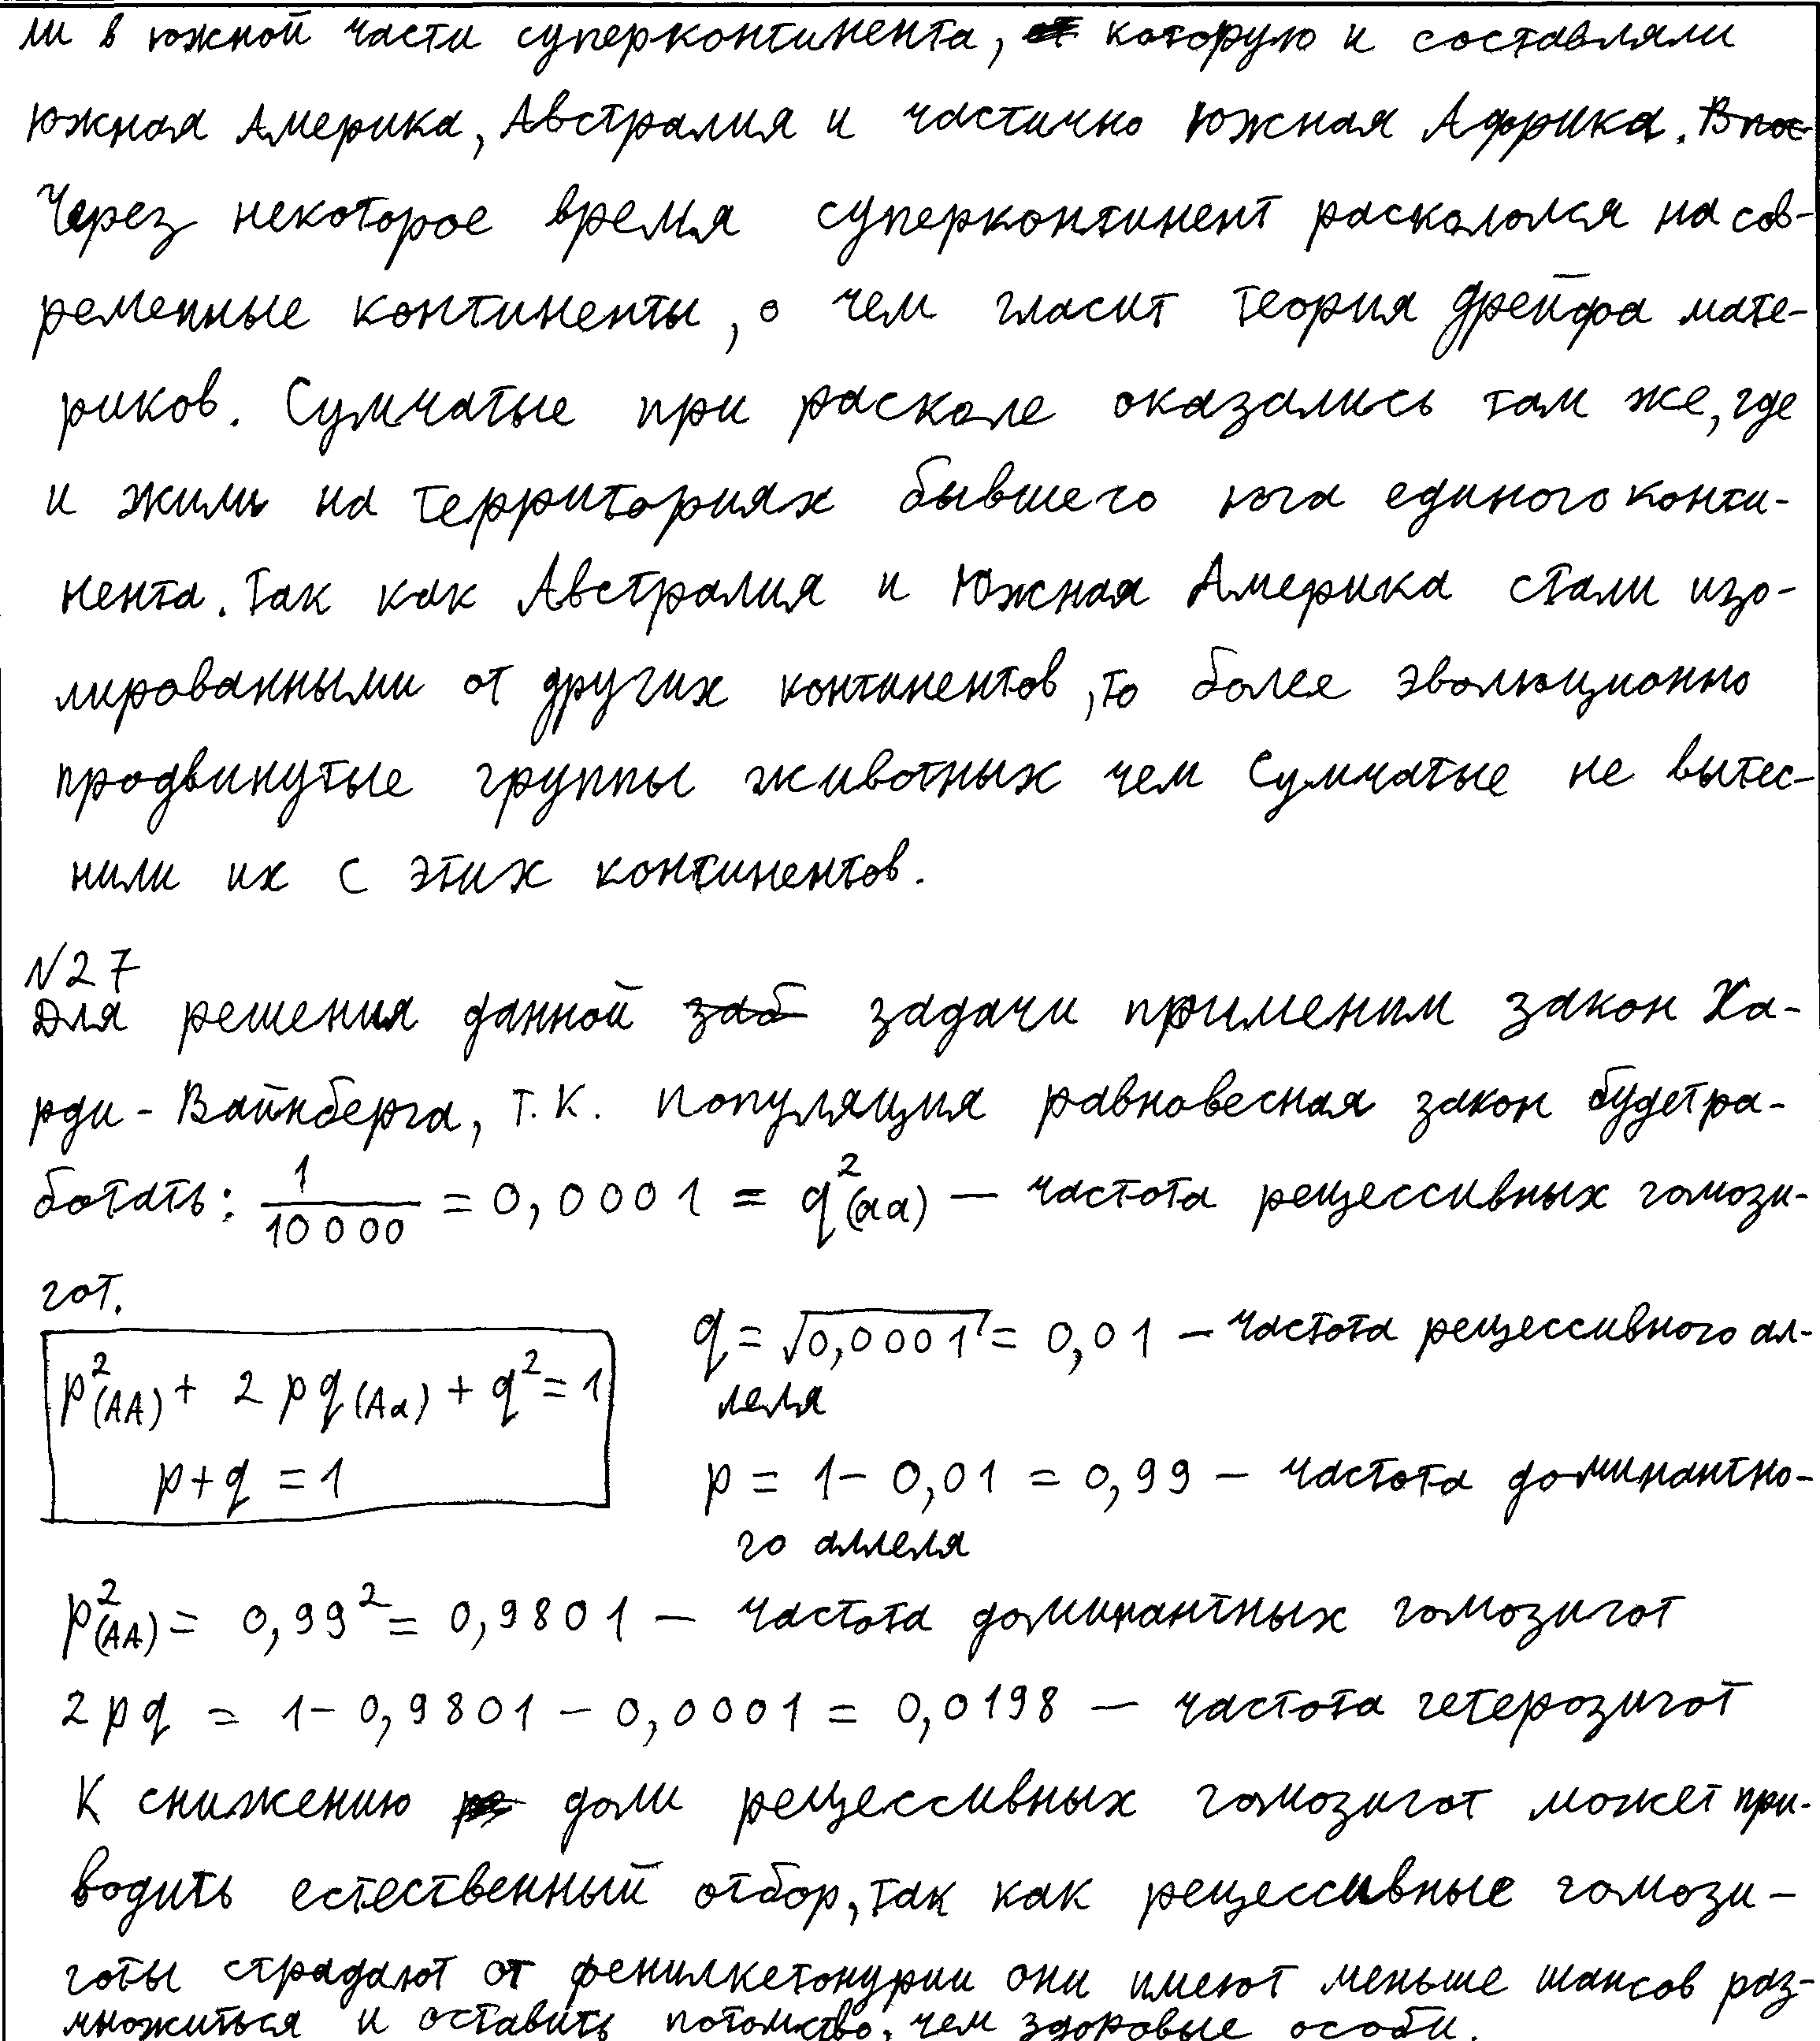 ли в южной части суперконтинента, которую и составляли
Южная Америка, Австралия и частично Южная Африка. Впос-
Через некоторое время суперконтинент раскололся на сов-
ременные континенты, о чем гласит теория дрейфа мате-
риков. Сумчатые при расколе оказались там же, где
и жили на территориях бывшего юга единого конти-
нента. Так как Австралия и Южная Америка стали изо-
лированными от других континентов, то более эволюционно
продвинутые группы животных чем Сумчатые не вытес-
нили их с этих континентов.
№27
Для решения данной заб задачи применим закон Ха-
рди - Вайнберга, т.к. популяция равновесная закон будет ра-
ботать: 1/10000 = 0,0001 = q²(аа) — частота рецессивных гомози-
гот.
p²(АА) + 2pq(Аа) + q² = 1
p+q = 1
q = √0,0001 = 0,01 — частота рецессивного ал-
леля
p = 1 - 0,01 = 0,99 — частота доминантно-
го аллеля
p²(АА) = 0,99² = 0,9801 — частота доминантных гомозигот
2pq = 1 - 0,9801 - 0,0001 = 0,0198 — частота гетерозигот
К снижению доли рецессивных гомозигот может при-
водить естественный отбор, так как рецессивные гомози-
готы страдают от фенилкетонурии они имеют меньше шансов раз-
множиться и оставить потомство, чем здоровые особи.